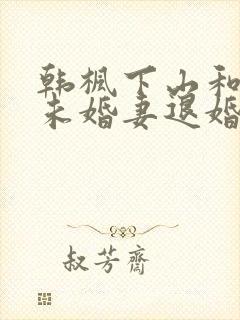 韩枫下山和
未婚妻退婚
叔芳齋